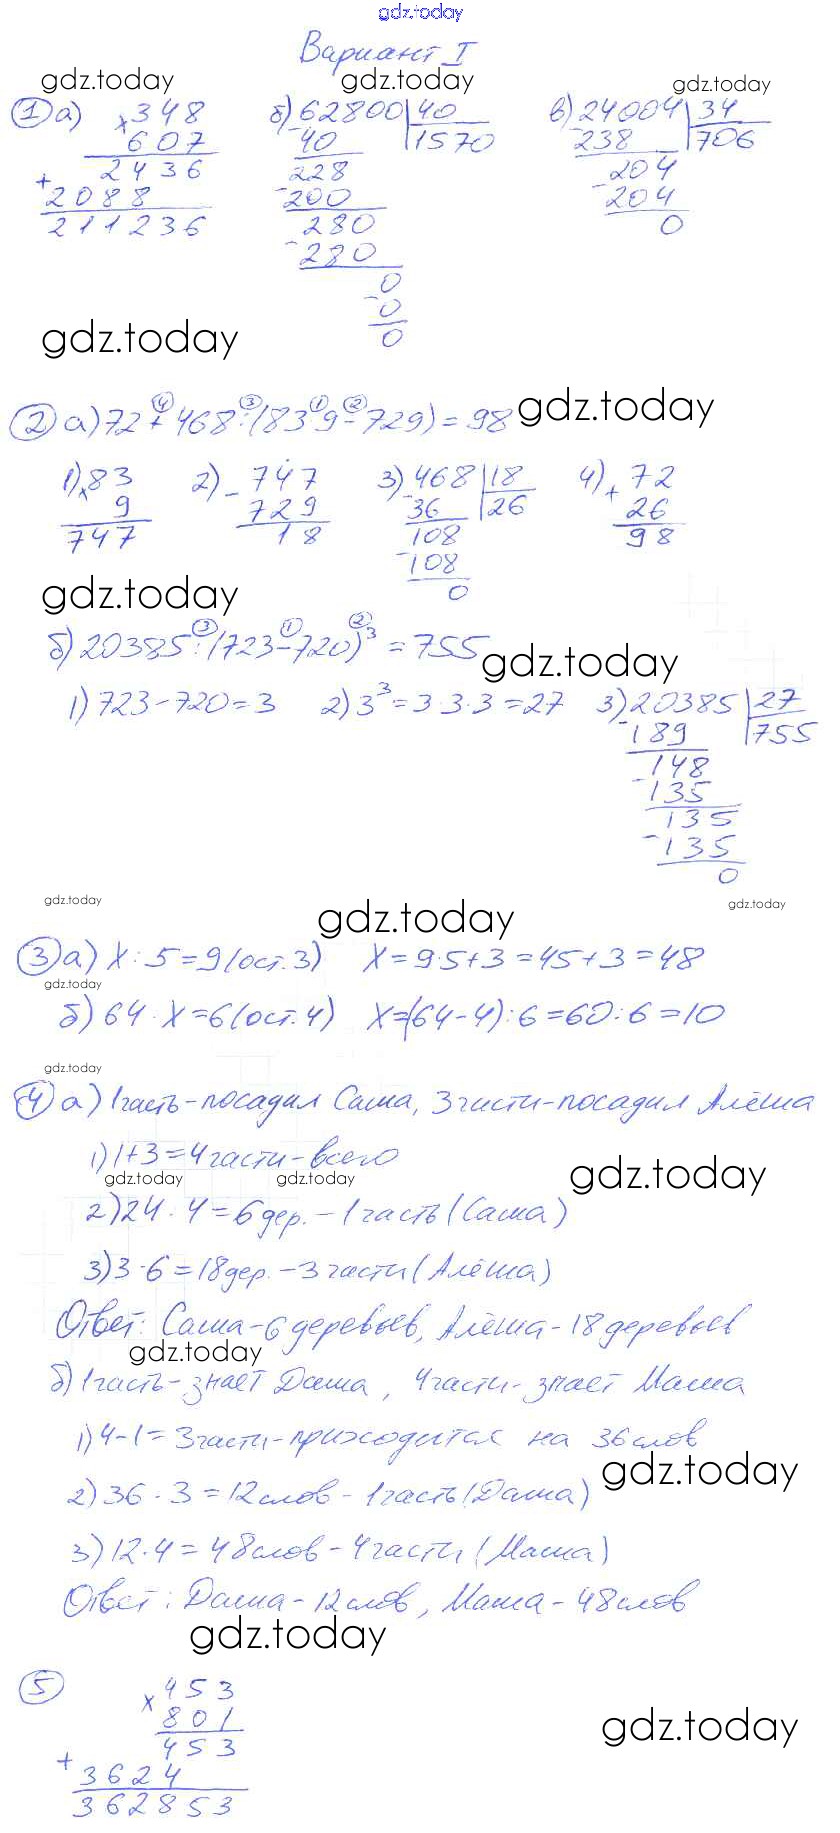 gdz.today
Вариант I
gdz.today gdz.today gdz.today
① а) × 348
607
2436
+ 2088
211236
б) 62800 | 40
- 40 | 1570
228
- 200
280
- 280
0
- 0
0
в) 24004 | 34
- 238 | 706
204
- 204
0
gdz.today
② а) 72 + 468 : (83 · 9 - 729) = 98
④ ③ ① ②
gdz.today
1) × 83
9
747
2) - 747
729
18
3) 468 | 18
- 36 | 26
108
- 108
0
4) + 72
26
98
gdz.today
б) 20385 : (723 - 720)³ = 755
③ ① ②
gdz.today
1) 723 - 720 = 3 2) 3³ = 3·3·3 = 27 3) 20385 | 27
- 189 | 755
148
- 135
135
- 135
0
gdz.today gdz.today gdz.today
③ а) x : 5 = 9 (ост. 3) x = 9·5+3 = 45+3 = 48
gdz.today
б) 64 · x = 6 (ост. 4) x = (64-4) : 6 = 60 : 6 = 10
gdz.today
④ а) 1 часть - посадил Саша, 3 части - посадил Алёша
1) 1+3 = 4 части - всего
gdz.today gdz.today gdz.today
2) 24 · 4 = 6 дер. - 1 часть (Саша)
3) 3·6 = 18 дер. - 3 части (Алёша)
Ответ: Саша - 6 деревьев, Алёша - 18 деревьев
gdz.today
б) 1 часть - знает Даша, 4 части - знает Маша
1) 4-1 = 3 части - приходится на 36 слов
gdz.today
2) 36 · 3 = 12 слов - 1 часть (Даша)
3) 12·4 = 48 слов - 4 части (Маша)
Ответ: Даша - 12 слов, Маша - 48 слов
gdz.today
⑤ × 453
801
453
+ 3624
362853
gdz.today